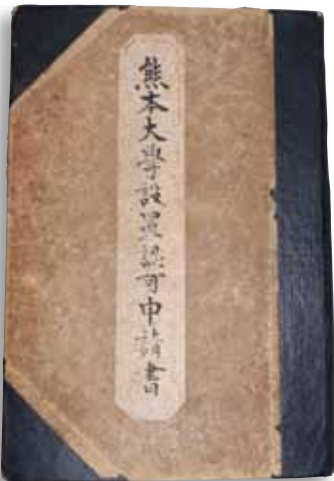 熊本大學設置認可申請書